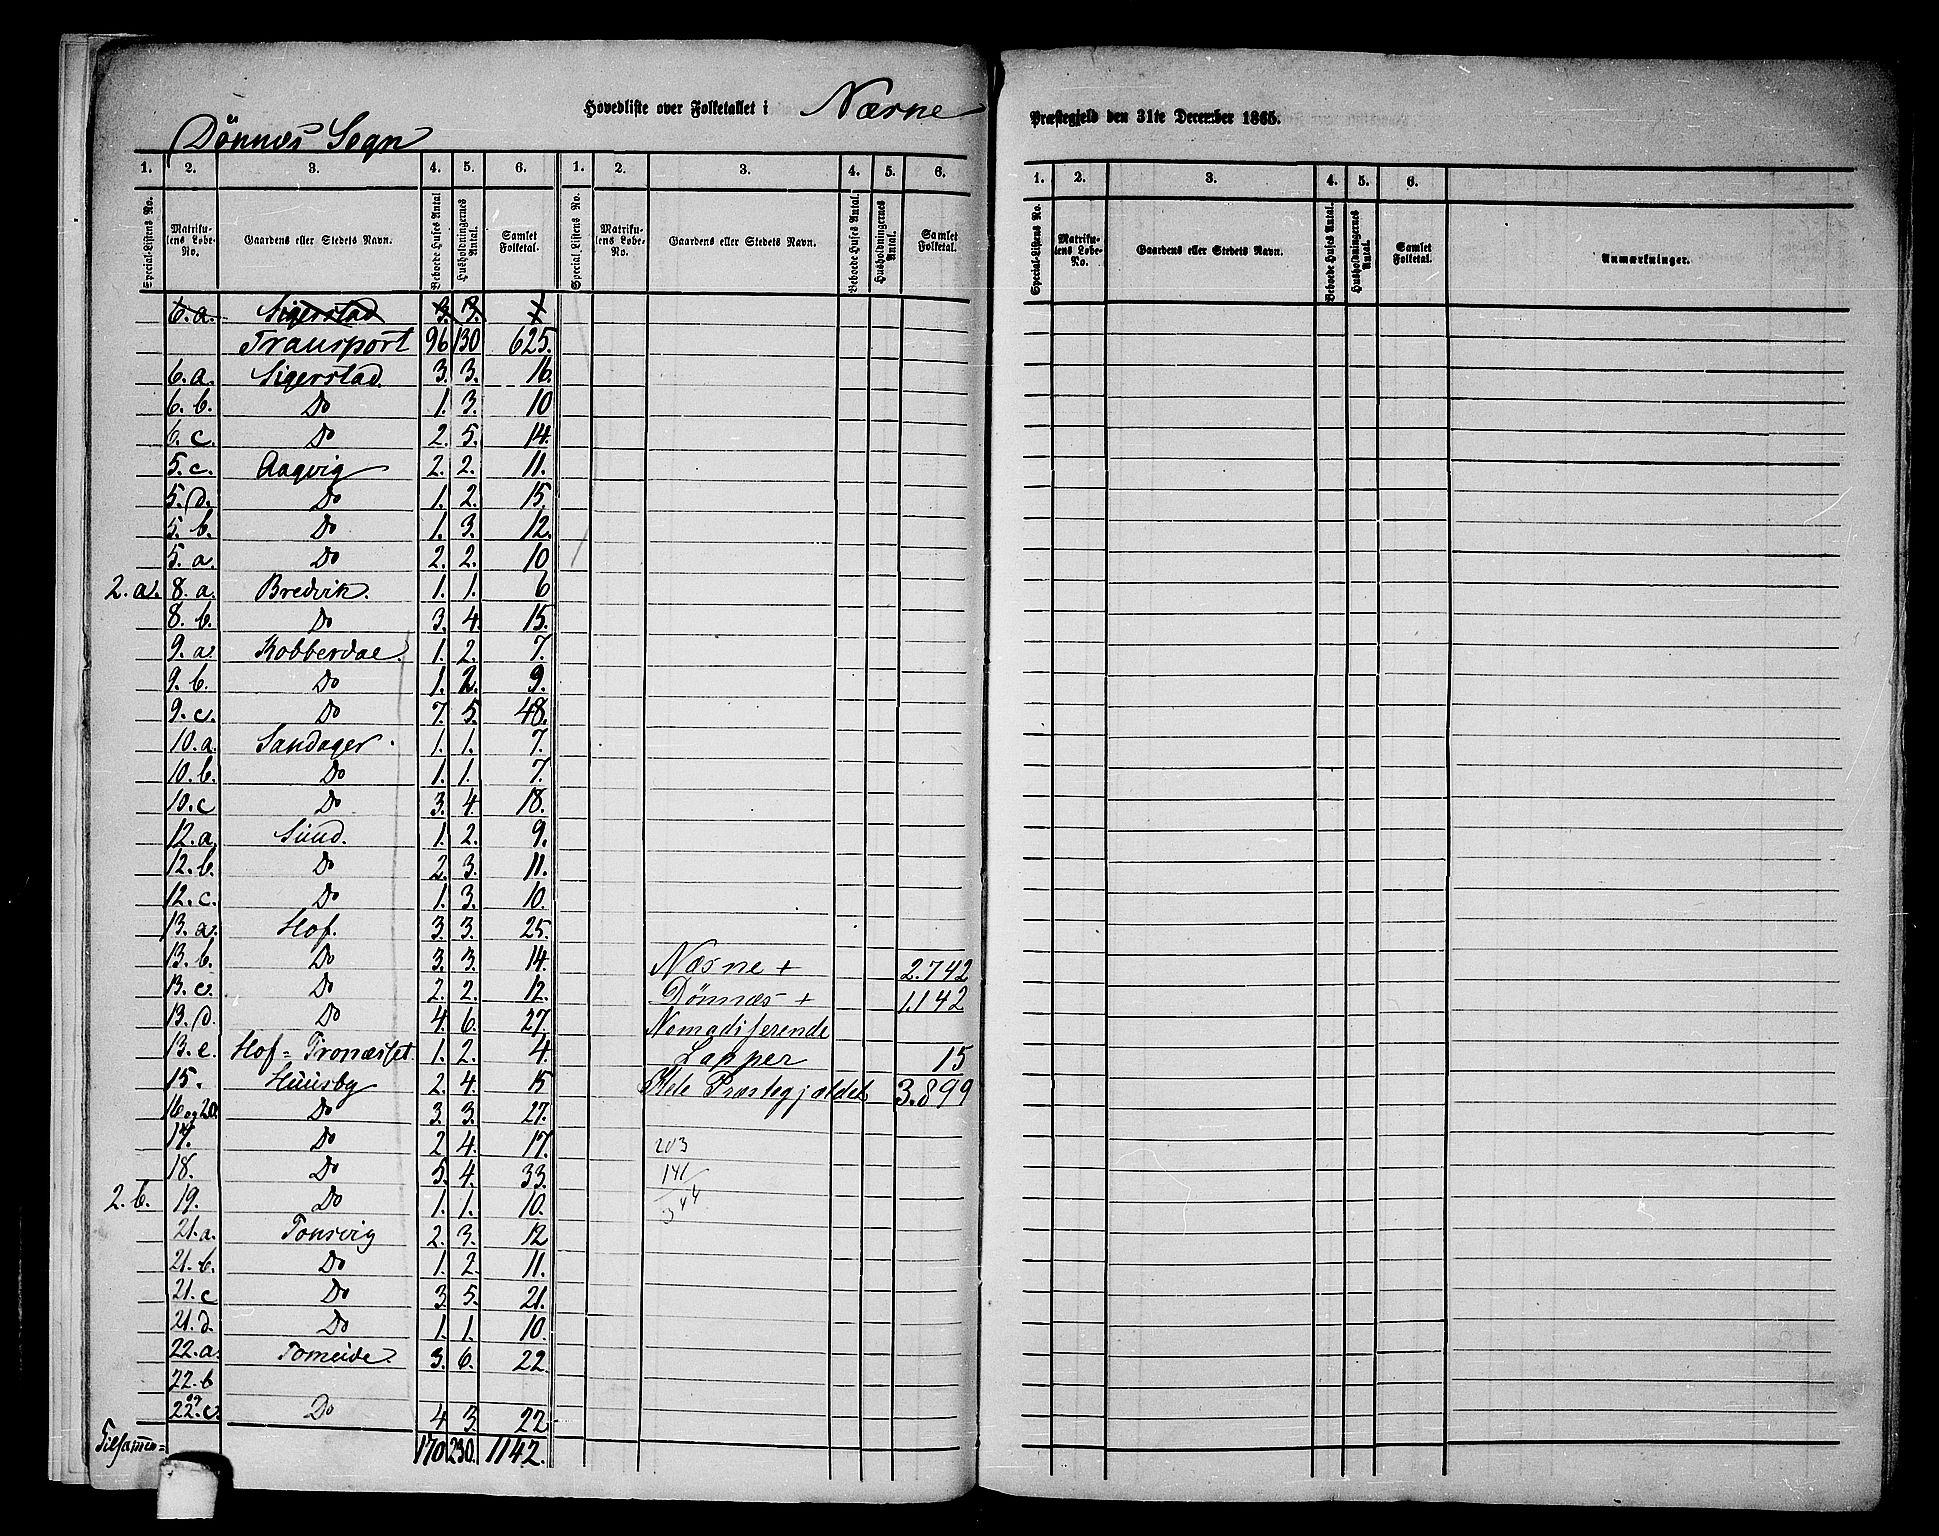 Hovedliste over Folketallet i Næsne Præstegjeld den 31te December 1865.
Dönnæs Sogn
1. 2. 3. 4. 5. 6. 1. 2. 3. 4. 5. 6.
Special-Listens No. Matrikulens Løbe-No. Gaardens eller Stedets Navn. Beboede Huses Antal Husholdningernes Antal. Samlet Folketal. Special Listens No. Matrikulens Løbe-No. Gaardens eller Stedets Navn. Beboede Huses Antal. Husholdningernes Antal. Samlet Folketal.
6.a. Sigerstad 3. 3.
Transport 96 130 625.
6.a. Sigerstad 3. 3. 16.
6.b. Do 1. 3. 10
6.c. Do 2. 5. 14.
5.c. Aagvig 2. 2. 11.
5.d. Do 1. 2. 15.
5.b. Do 1. 3. 12.
5.a. Do 2. 2. 10
2.a. 8.a. Bredvik. 1. 1. 6
8.b. Do 3. 4. 15.
9.a. Kobberdae. 1. 2. 7.
9.b. Do 1. 2. 9.
9.c. Do 7. 5. 48.
10.a. Sandager. 1. 1. 7.
10.b. Do 1. 1. 7.
10.c Do 3. 4 18.
12.a. Sund. 1. 2. 9.
12.b. Do 2. 3. 11.
12.c. Do 1. 3. 10.
13.a. Hof. 3. 3. 25.
13.b. Do 3. 3. 14.
13.c. Do 2. 2. 12.
13.d. Do 4. 6. 27.
13.e. Hof=Tronæsset 1. 2. 4.
15. Huusby 2. 4. 15
16 og 20. Do 3. 3. 27.
17. Do 2 4. 17.
18. Do 5. 4. 33.
2.b. 19. Do 1. 1. 10.
21.a. Tonsvig 2. 3. 12
21.b. Do 1. 2. 11.
21.c Do 3. 5. 21.
21.d. Do 1. 1. 10.
22.a. Tomeide. 3. 6. 22
22.b
og
22.c. Do 4 3. 22
Tilsammen= 170. 230. 1142.
Næsne + 2.742
Dönnæs + 1.142
Nomadiserende
Lapper 15
Hele Præstegjældet 3.899
203
141
344
1. 2. 3. 4. 5. 6.
Special-Listens No. Matrikulens Løbe-No. Gaardens eller Stedets Navn. Beboede Huses Antal. Husholdningernes Antal. Samlet Folketal. Anmærkninger.